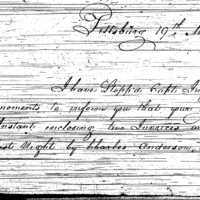 Pittsburg 19th
I have Stopp'd Capt.
moments to inform you that your
Instant enclosing two Invoices
Night by Charles Anderson,